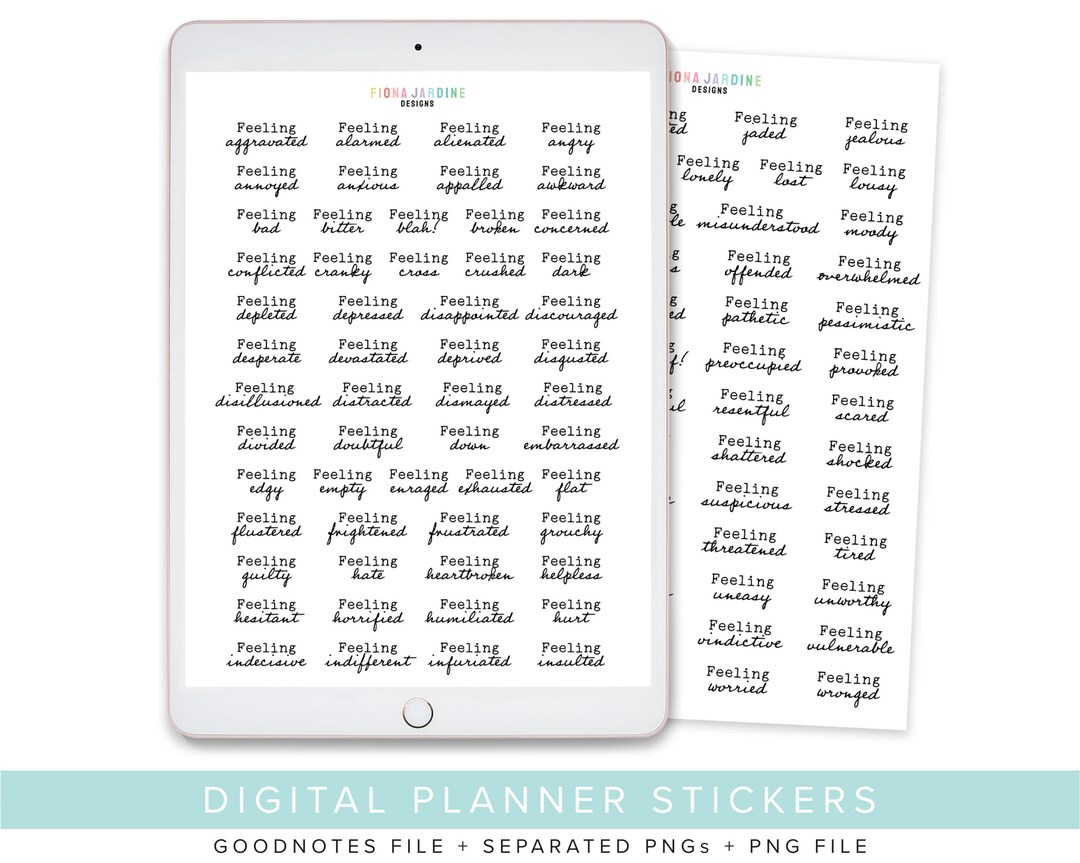 FIONA JARDINE
DESIGNS
Feeling Feeling Feeling Feeling
aggravated alarmed alienated angry
Feeling Feeling Feeling Feeling
annoyed anxious appalled awkward
Feeling Feeling Feeling Feeling Feeling
bad bitter blah! broken concerned
Feeling Feeling Feeling Feeling Feeling
conflicted cranky cross crushed dark
Feeling Feeling Feeling Feeling
depleted depressed disappointed discouraged
Feeling Feeling Feeling Feeling
desperate devastated deprived disgusted
Feeling Feeling Feeling Feeling
disillusioned distracted dismayed distressed
Feeling Feeling Feeling Feeling
divided doubtful down embarrassed
Feeling Feeling Feeling Feeling Feeling
edgy empty enraged exhausted flat
Feeling Feeling Feeling Feeling
flustered frightened frustrated grouchy
Feeling Feeling Feeling Feeling
guilty hate heartbroken helpless
Feeling Feeling Feeling Feeling
hesitant horrified humiliated hurt
Feeling Feeling Feeling Feeling
indecisive indifferent infuriated insulted
JARDINE
DESIGNS
Feeling Feeling
jaded jealous
Feeling Feeling Feeling
lonely lost lousy
Feeling Feeling
misunderstood moody
Feeling Feeling
offended overwhelmed
Feeling Feeling
pathetic pessimistic
Feeling Feeling
preoccupied provoked
Feeling Feeling
resentful scared
Feeling Feeling
shattered shocked
Feeling Feeling
suspicious stressed
Feeling Feeling
threatened tired
Feeling Feeling
uneasy unworthy
Feeling Feeling
vindictive vulnerable
Feeling Feeling
worried wronged
DIGITAL PLANNER STICKERS
GOODNOTES FILE + SEPARATED PNGs + PNG FILE